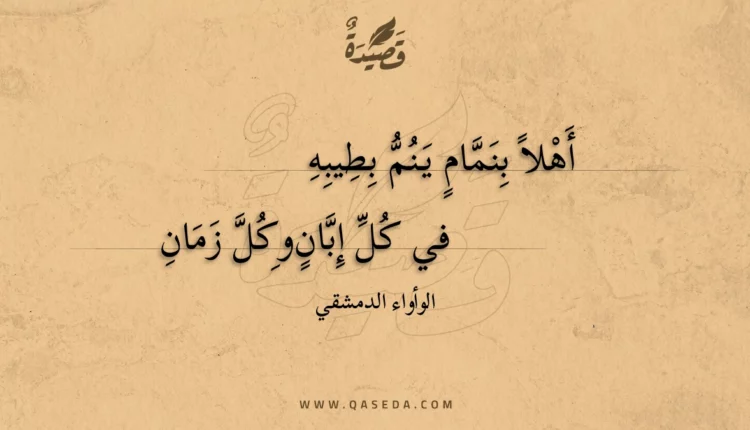 قَصِيدَةٌ
أَهْلاً بِنَمَّامٍ يَنُمُّ بِطِيبِهِ
في كُلِّ إِبَّانٍوكُلِّ زَمَانِ
الوأواء الدمشقي
WWW.QASEDA.COM